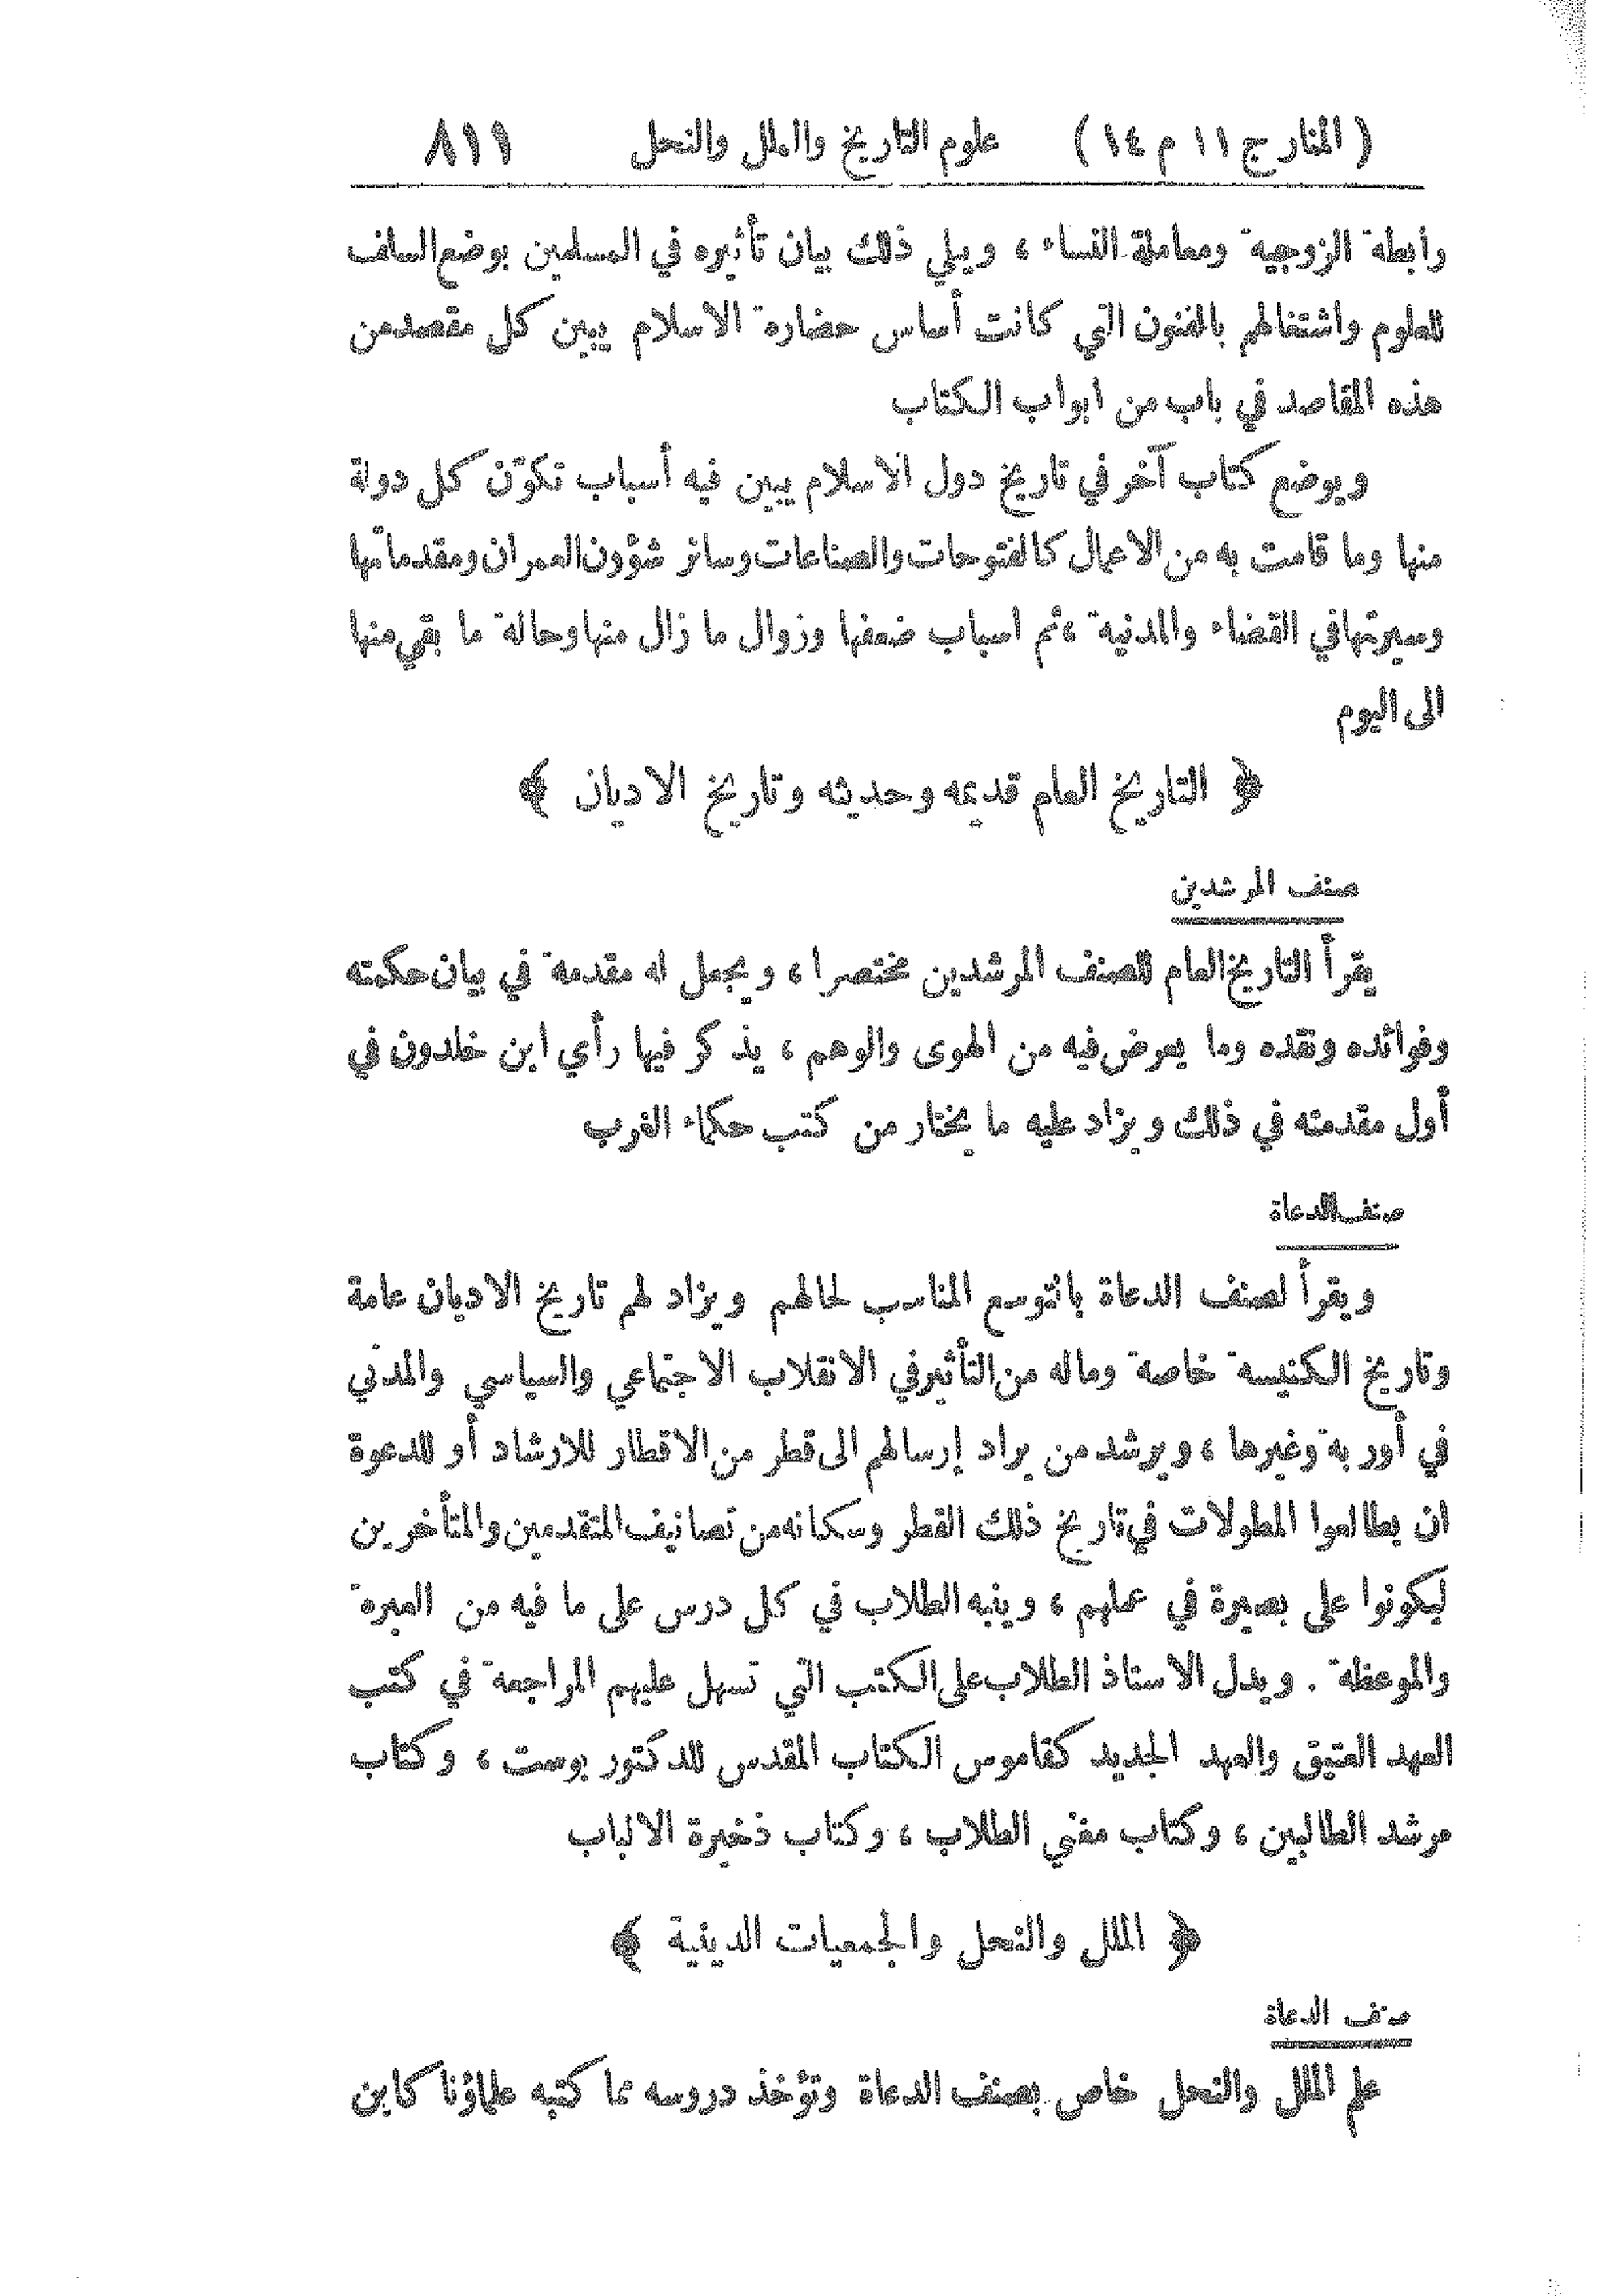 ( المنار ج ١١ م ١٤ ) علوم التاريخ والملل والنحل ٨١١
رابطة الزوجية ومعاملة النساء ، ويلي ذلك بيان تأثيره في المسلمين بوضع السلف
للعلوم واشتغالهم بالفنون التي كانت أساس حضارة الاسلام يبين كل مقصد من
هذه المقاصد في باب من ابواب الكتاب
ويوضع كتاب آخر في تاريخ دول الاسلام يبين فيه أسباب تكوّن كل دولة
منها وما قامت به من الاعمال كالفتوحات والصناعات وسائر شؤون العمران ومقدماتها
وسيرتها في القضاء والمدنية ، ثم اسباب ضعفها وزوال ما زال منها وحالة ما بقي منها
الى اليوم
﴿ التاريخ العام قديمه وحديثه وتاريخ الاديان ﴾
صنف المرشدين
يقرأ التاريخ العام للصنف المرشدين مختصرا ، ويجعل له مقدمة في بيان حكمته
وفوائده ونقده وما يعرض فيه من الهوى والوهم ، يذكر فيها رأي ابن خلدون في
أول مقدمته في ذلك ويزاد عليه ما يختار من كتب حكماء الغرب
صنف الدعاة
ويقرأ لصنف الدعاة بالتوسع المناسب لحالهم ويزاد لهم تاريخ الاديان عامة
وتاريخ الكنيسة خاصة وماله من التأثير في الانقلاب الاجتماعي والسياسي والمدني
في أوربة وغيرها ، ويرشد من يراد إرسالهم الى قطر من الاقطار للارشاد أو للدعوة
ان يطالعوا المطولات في تاريخ ذلك القطر وسكانه من تصانيف المتقدمين والمتأخرين
ليكونوا على بصيرة في عملهم ، وينبه الطلاب في كل درس على ما فيه من العبرة
والموعظة . ويدل الاستاذ الطلاب على الكتب التي تسهل عليهم المراجعة في كتب
العهد العتيق والعهد الجديد كقاموس الكتاب المقدس للدكتور بوست ، وكتاب
مرشد الطالبين ، وكتاب مغني الطلاب ، وكتاب ذخيرة الالباب
﴿ الملل والنحل والجمعيات الدينية ﴾
صنف الدعاة
علم الملل والنحل خاص بصنف الدعاة وتؤخذ دروسه مما كتبه علماؤنا كابن